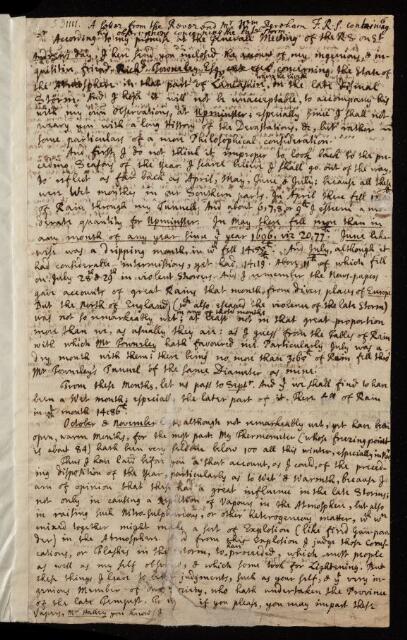 IIII. A Letter from the Reverend Mr Wm Derham F.R.S. containing
observations concerning the late Storm.
According to my promise at the Generall Meeting of the RS on St
Andrews day, I here send you inclosed the account of my ingenious, & in-
quisitive friend Rich: Townely Esqr concerning the State of
the Atmosphere in that part of Lancashire in the late dismal
Storm. And I hope it will not be unacceptable, to accompany this
with my own observations at Upminster; especially since I shall not
weary you with a long History of the Devastations, &c, but rather
some particulars of a more Philosophical consideration.
And first, I do not think it improper to look back to the pre-
ceding Seasons of the Year. I scarce believe I shall go out of the way,
to reflect as far back as April, May, June & July; because all these
were Wet months in our Southern parts. In April there fell
of Rain through my Tunnell: And about 6, 7, 8, or 9 I esteem a mo-
derate quantity for Upminster. In May there fell more than in
any month of any year since the year 1696, viz 20,77. June like-
wise was a dripping month, in wch fell 14,55. And July, although it
had considerable intermissions, yet had 14,19. Above of which fell
on July 28th & 29th in violent Storms. And I remember the News-papers
gave accounts of great Rains that month, from divers places of Europe
But the North of England (wch also escaped the violence of the late Storm)
was not so remarkably wet in any of those months;
at least not in that great proportion
more than we, as usually they are: as I guess from the Tables of Rain
with which Mr Townely hath favoured me. Particularly July was a
dry month with them; there being no more than 3,65 of Rain fell thro
Mr Townely's Tunnel of the same Diameter as mine.
From these Months, let us pass to Septr. And that we shall find to have
been a Wet month, especial. the later part of it. there fell of Rain
in that month 14,86.
October & November last, although not remarkably wet, yet have been
open, warm Months, for the most part. My Thermometer (whose freezing point
is about 84) hath been very seldome below 100 all this winter, especially in Nov
Thus I have laid before you as short account, as I could, of the preced-
ing disposition of the Year, particularly as to Wet & Warmth, because I
am of opinion that these had a great influence in the late Storms;
not only in causing a repletion of Vapours in the Atmosphere, but also
in raising such Nitro-sulphureous, or other heterogeneous matter, wch wn
mixed together might make a sort of Explosion (like fired Gun-pow-
der) in the Atmosphere. And from this Explosion I judge those Corus-
cations, or Flashes in the Storm, to have proceeded, which most people
as well as my self observed, & which some took for Lightning. But
these things I leave to better Judgments, such as your self, & that very in-
genious Member of our Society, who hath undertaken the Province
of the late Tempest. To whom if you please, you may impart these
Papers, Mr Halley you know I